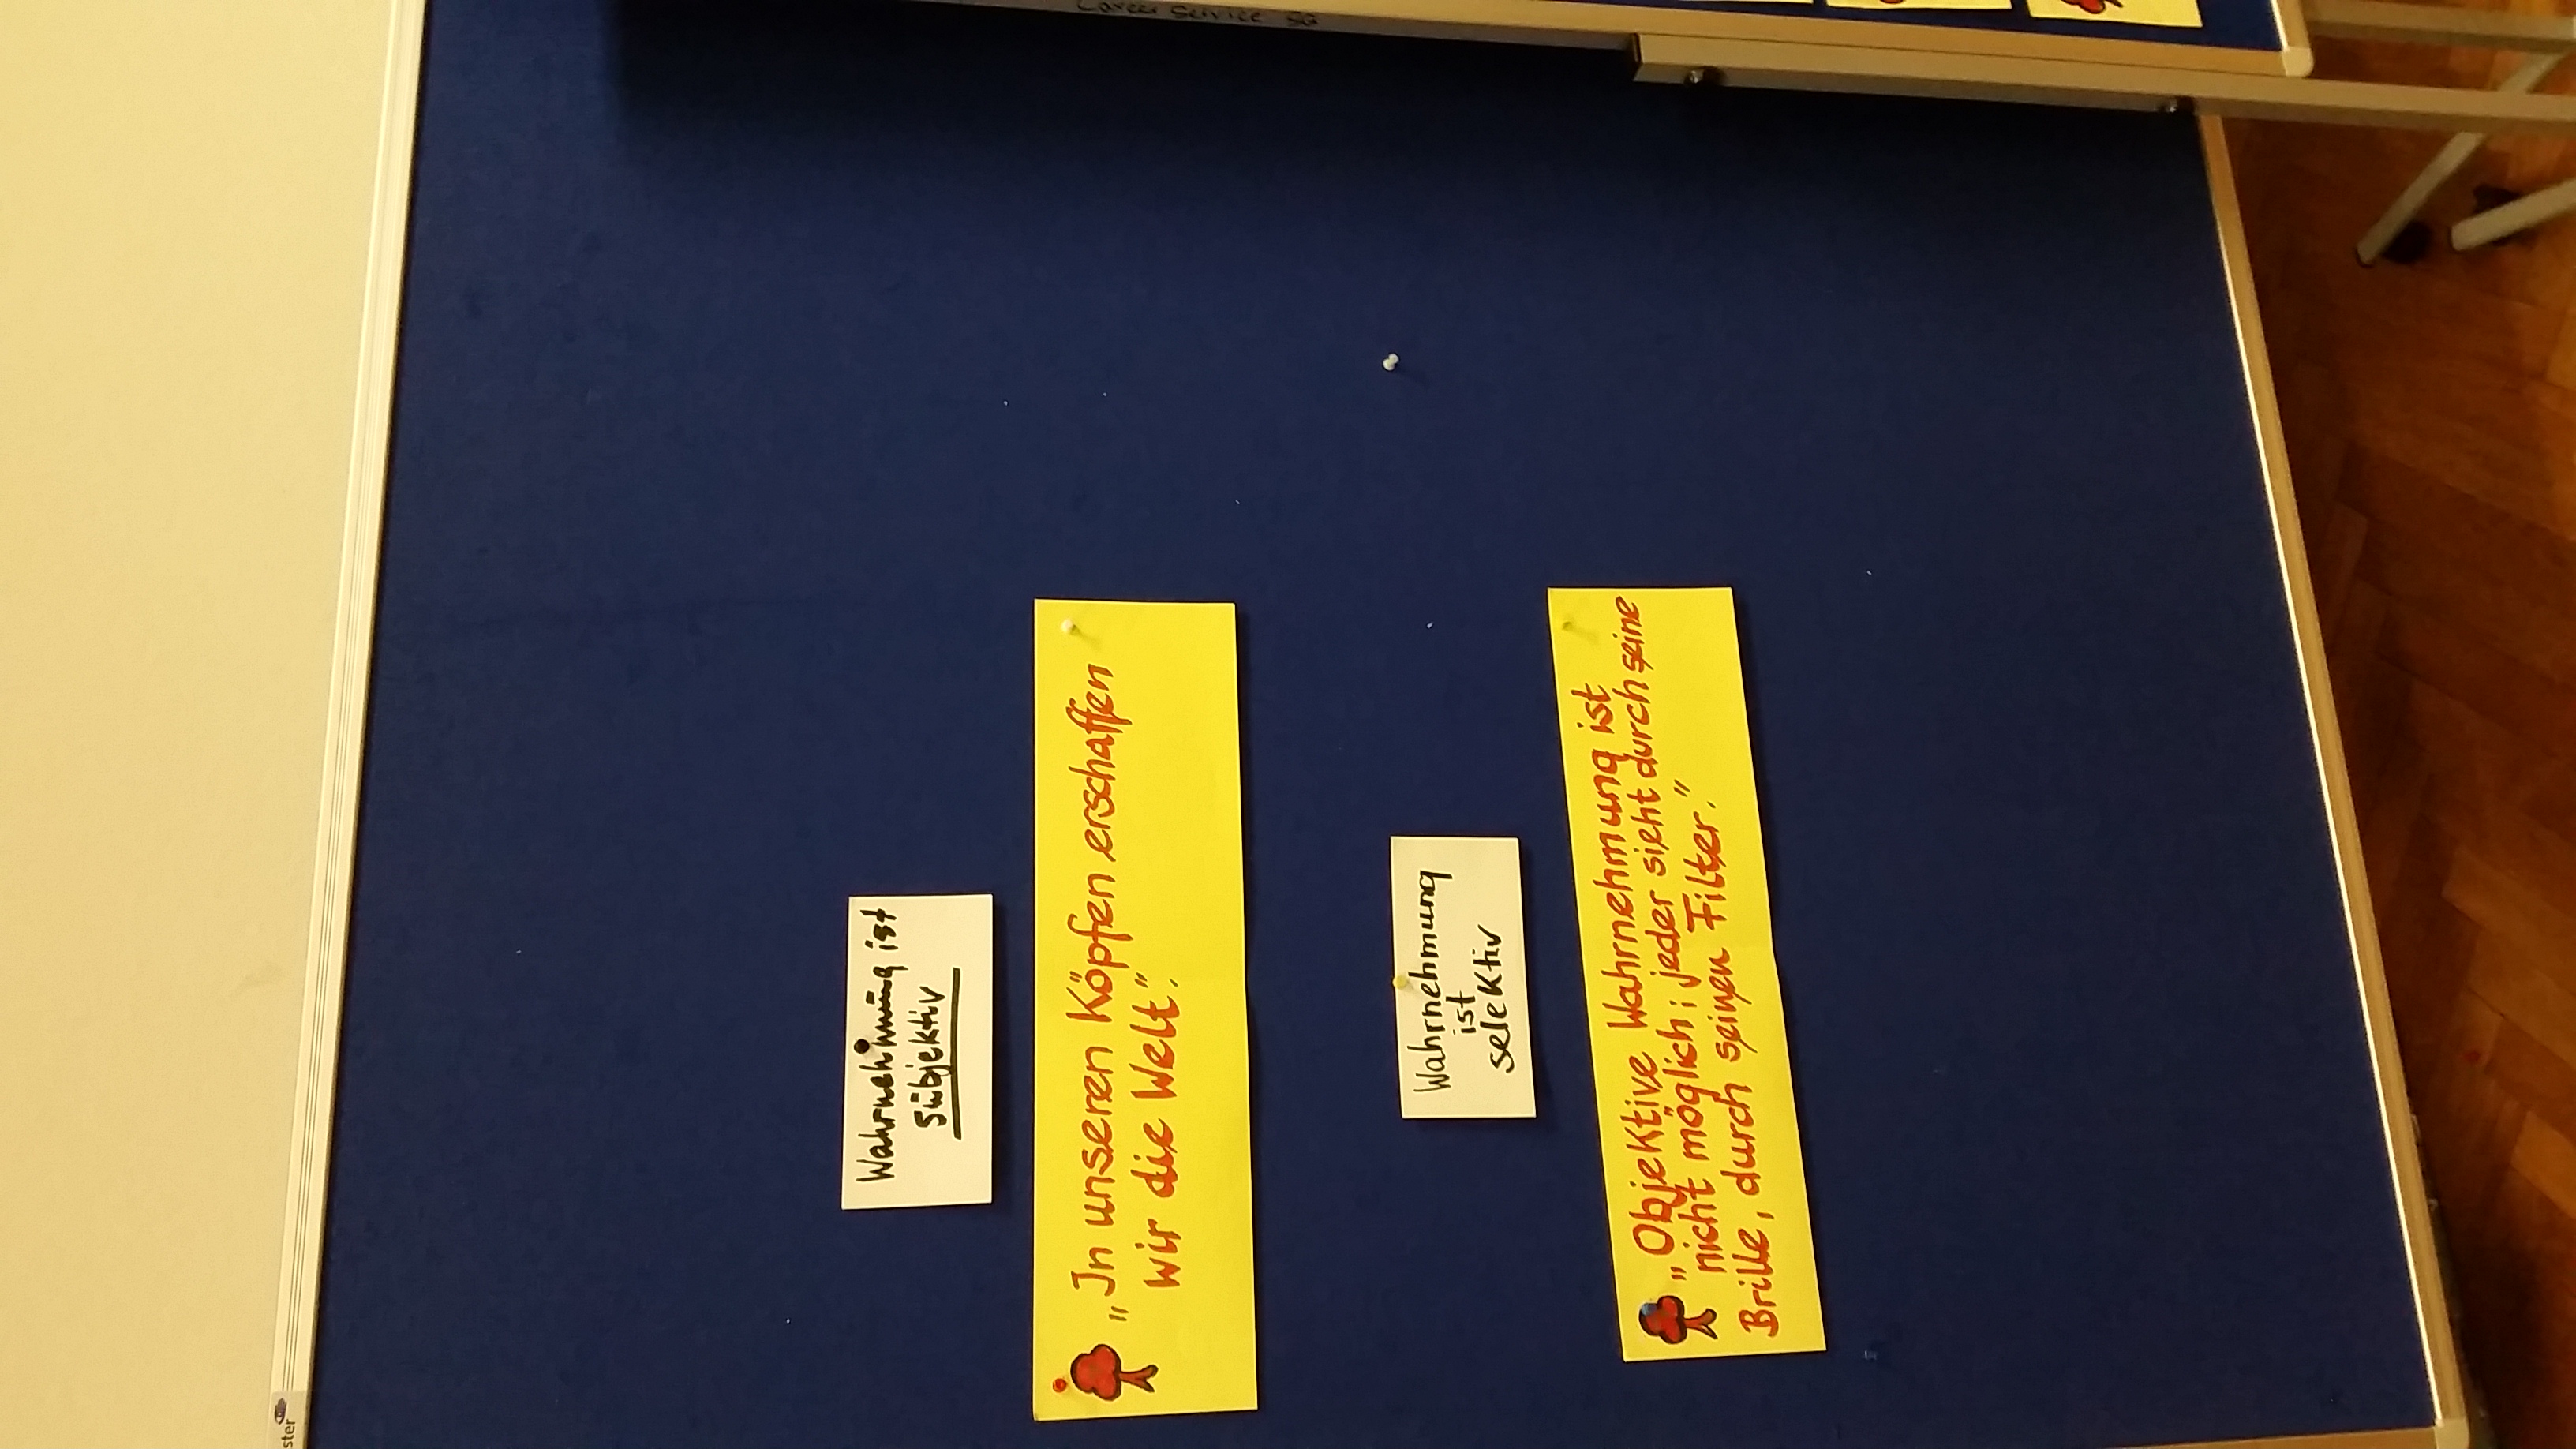 ster
Wahrnehmung ist
subjektiv
„In unseren Köpfen erschaffen
wir die Welt".
Wahrnehmung
ist
selektiv
„Objektive Wahrnehmung ist
nicht möglich; jeder sieht durch seine
Brille, durch seinen Filter."
Career Service SG